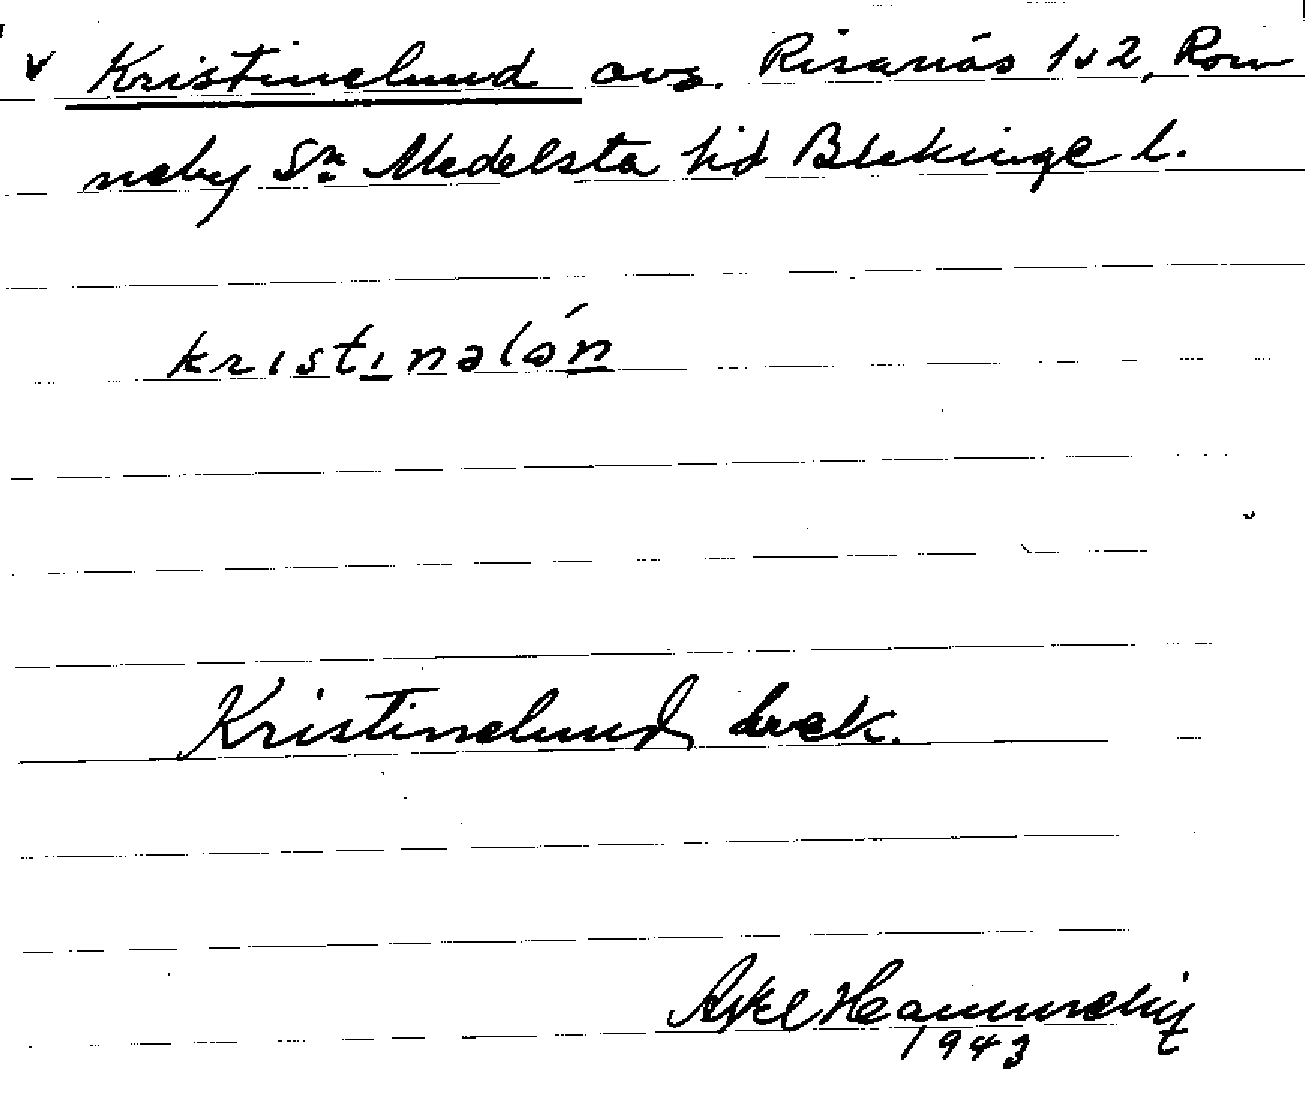 v Kristinelund avs. Risanäs 1 o 2, Ron
neby Sn Medelsta hd Blekinge l.
kristinəlón
Kristinelund bvek.
Axel
1943